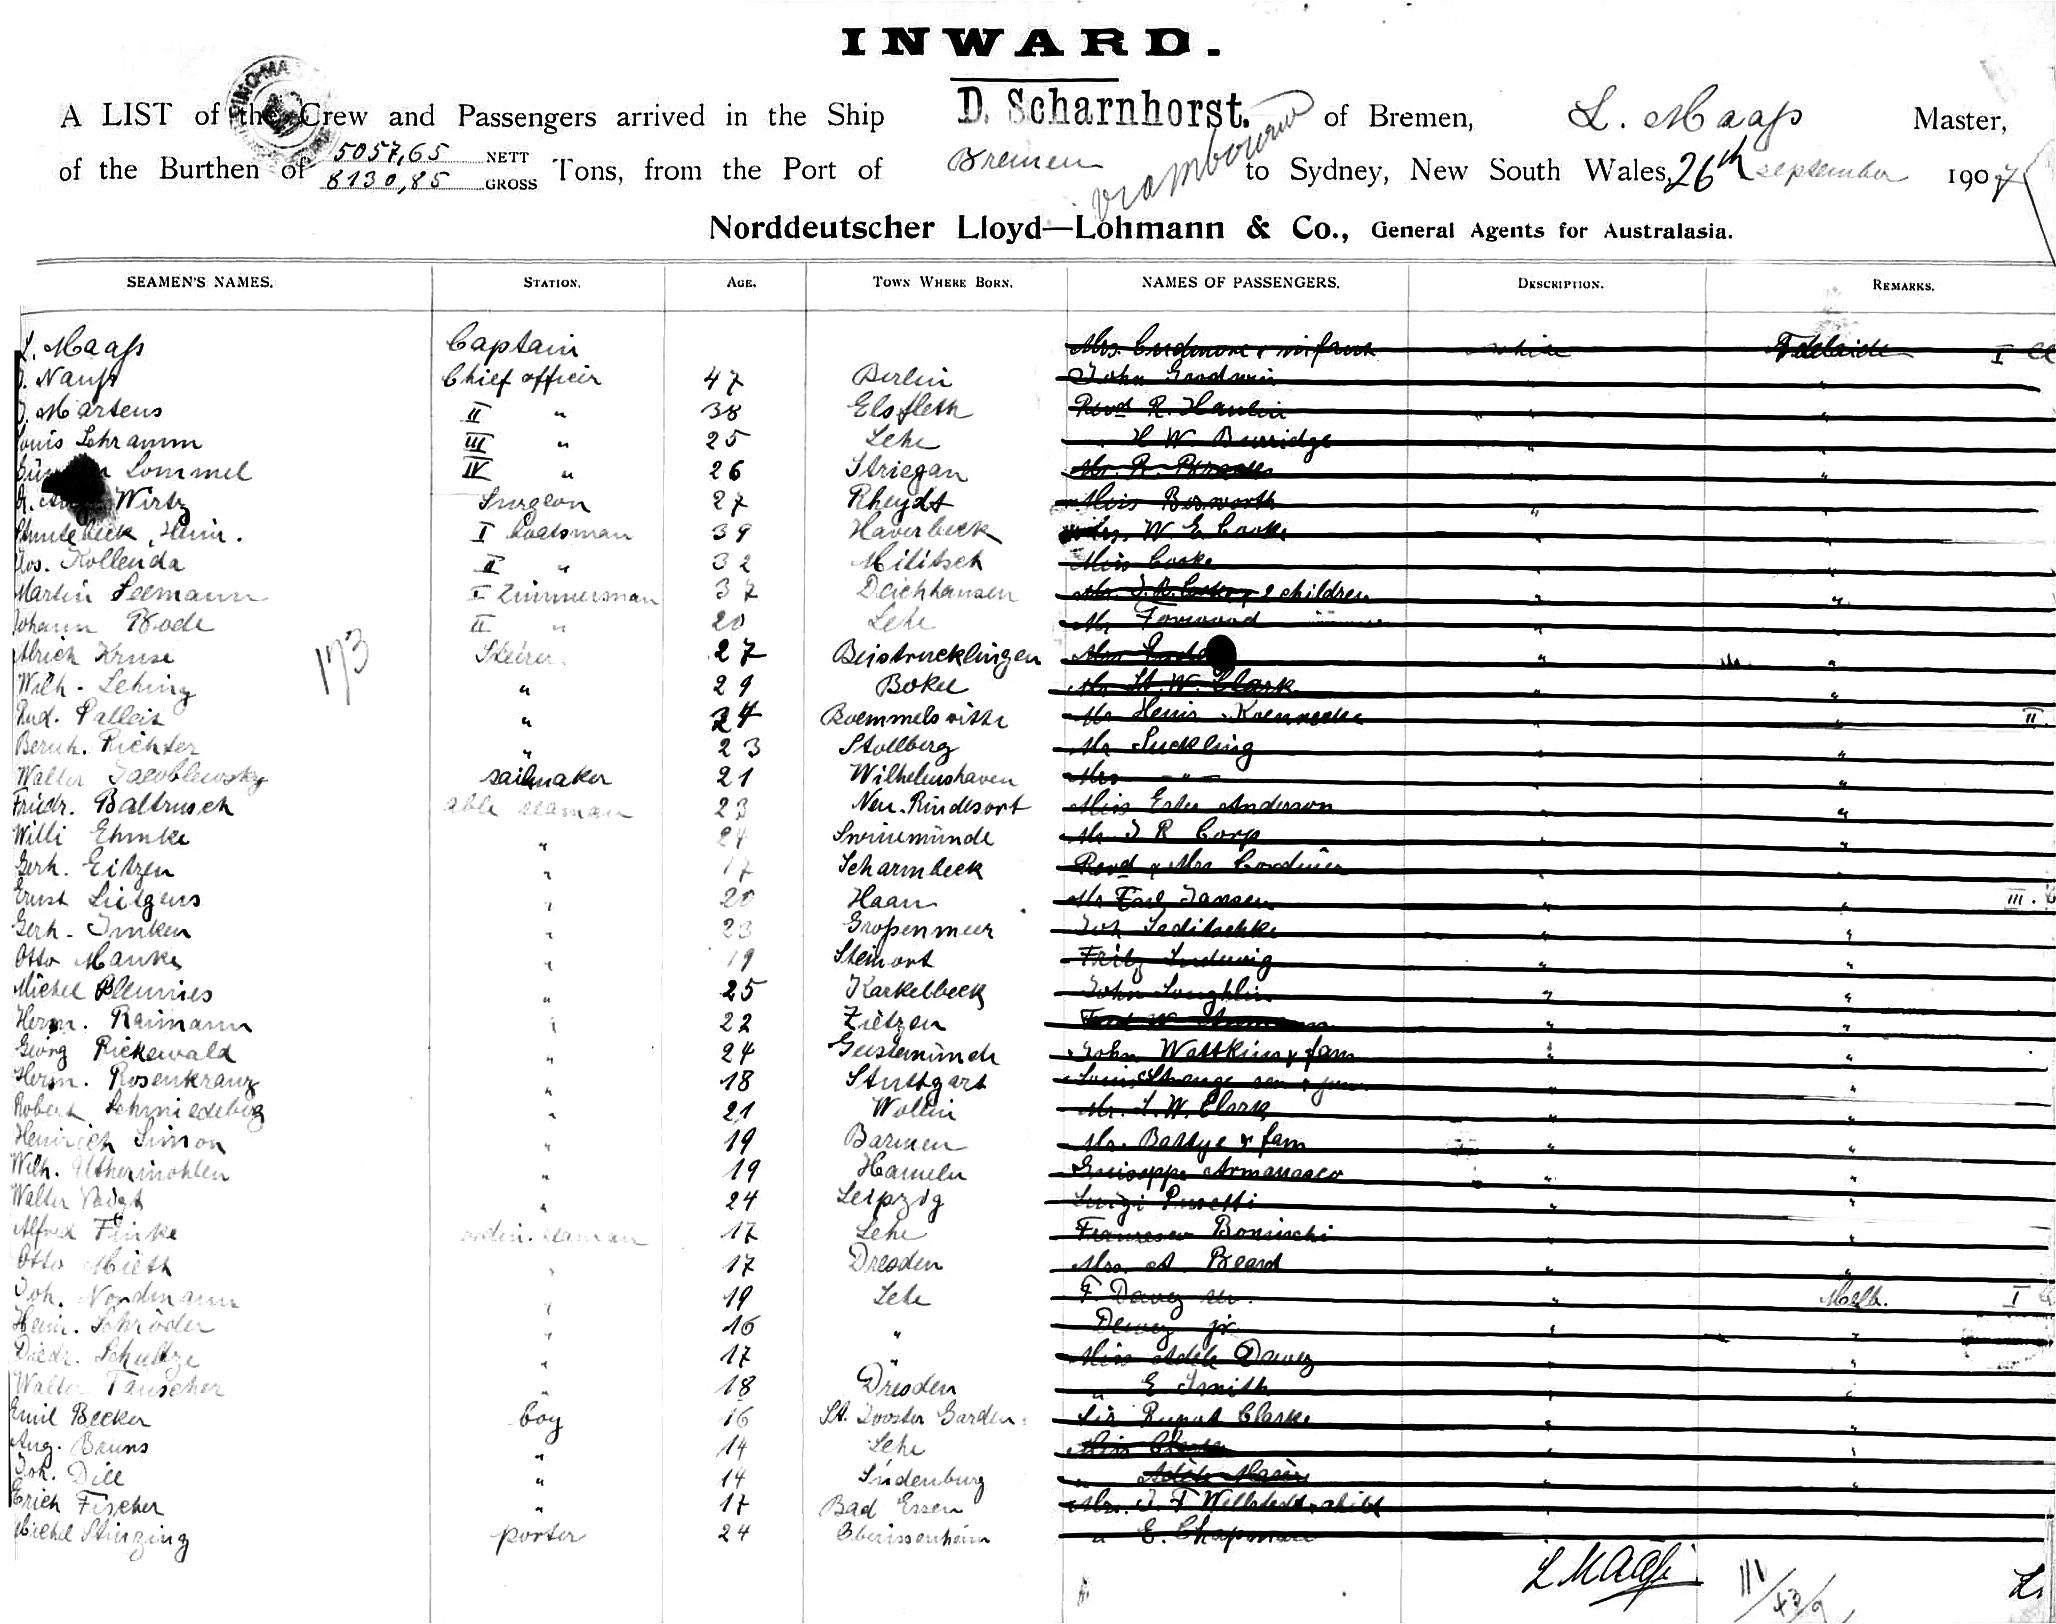 INWARD.
A LIST of the Crew and Passengers arrived in the Ship D. Scharnhorst. of Bremen, L. Maaß Master,
of the Burthen of 5057,65 NETT 8130,85 GROSS Tons, from the Port of Bremen to Sydney, New South Wales, 26th september 1907
Norddeutscher Lloyd—Lohmann & Co., General Agents for Australasia.
SEAMEN'S NAMES. STATION. AGE. TOWN WHERE BORN. NAMES OF PASSENGERS. DESCRIPTION. REMARKS.
L. Maaß Captain Mrs. Cudmore & infant Adelaide I
Chief officer 47 Berlin John Goodwin "
Martens II " 38 Elsfleth Revd R. "
Louis Schramm III " 25 Lehe " H W. Burridge "
Lommel IV " 26 Striegau Mr. R. "
Wirtz Surgeon 27 Rheydt Miss Bosworth "
Heinr. I boatsman 39 Haverbeck Mrs. W. E. Cooke "
Jos. Kollenda II " 32 Militsch Miss Cooke "
Martin Seemann I Zimmersman 37 Deichhausen & 2 children " "
Johann Bode II " 20 Lehe Mr Forwood " "
Ulrich Kruse 27 Mrs " "
173
Wilh. Sehing " 29 Bokel Mr St. W. Clark " "
Rud. Palleit " Mr Heinr. Koennecke " " II.
Bernh. Richter " 23 Stollberg Mr Suckling " "
Walter Jacoblewsky sailmaker 21 Wilhelmshaven Mrs — " — " "
Friedr. Baltrusch able seaman 23 Neu-Rindesort Miss Ester Anderson " "
Willi Ehmke " 24 Swinemünde Mr J R Corp " "
Gerh. Eitzen " 17 Scharmbeck Revd & Mrs Cordiner " "
Ernst Lütgens " 20 Haan Mr Carl Jansen " " III.
Gerh. Imken " 23 Großenmeer Joh " "
Otto Manke " 19 Steinort Fritz Ludwig " "
Michel " 25 Karkelbeck John Loughlin " "
Herm. Raimann " 22 Zietzen " "
Georg Rickewald " 24 Geestemünde John Wattkins & fam " "
Herm. Rosenkranz " 18 Stuttgart Louis Strange sen & jun. " "
Robert Schmiedeberg " 21 Wollin Mr. S. W. Clark " "
Heinrich Simon " 19 Barmen Mr. Battye & fam " "
Wilh. Uthermöhlen " 19 Hameln Guiseppe Armanasco " "
Walter Voigt " 24 Leipzig Luigi Pusetti " "
Alfred Finke ordin. seaman 17 Lehe Francesco Bonischi " "
Otto Mieth " 17 Dresden Mrs. A. Beard " "
Joh. Nordmann " 19 Lehe F. Davey sen. " Melb. I
Heinr. Schröder " 16 " Dewey jr. " "
Diedr. Schultze " 17 " Miss Adele Davey " "
Walter Tauscher " 18 Dresden " E Smith " "
Emil Becker boy 16 Sir Rupert Clarke " "
Aug. Bruns " 14 Lehe Miss " "
Joh. Dill " 14 Sudenburg " Adele " "
Erich Fischer " 17 Bad Essen Mrs. J. F. Wellstedt & child
Michel Stinzing porter 24 Oberissenheim " E. Chapman
L Maaß